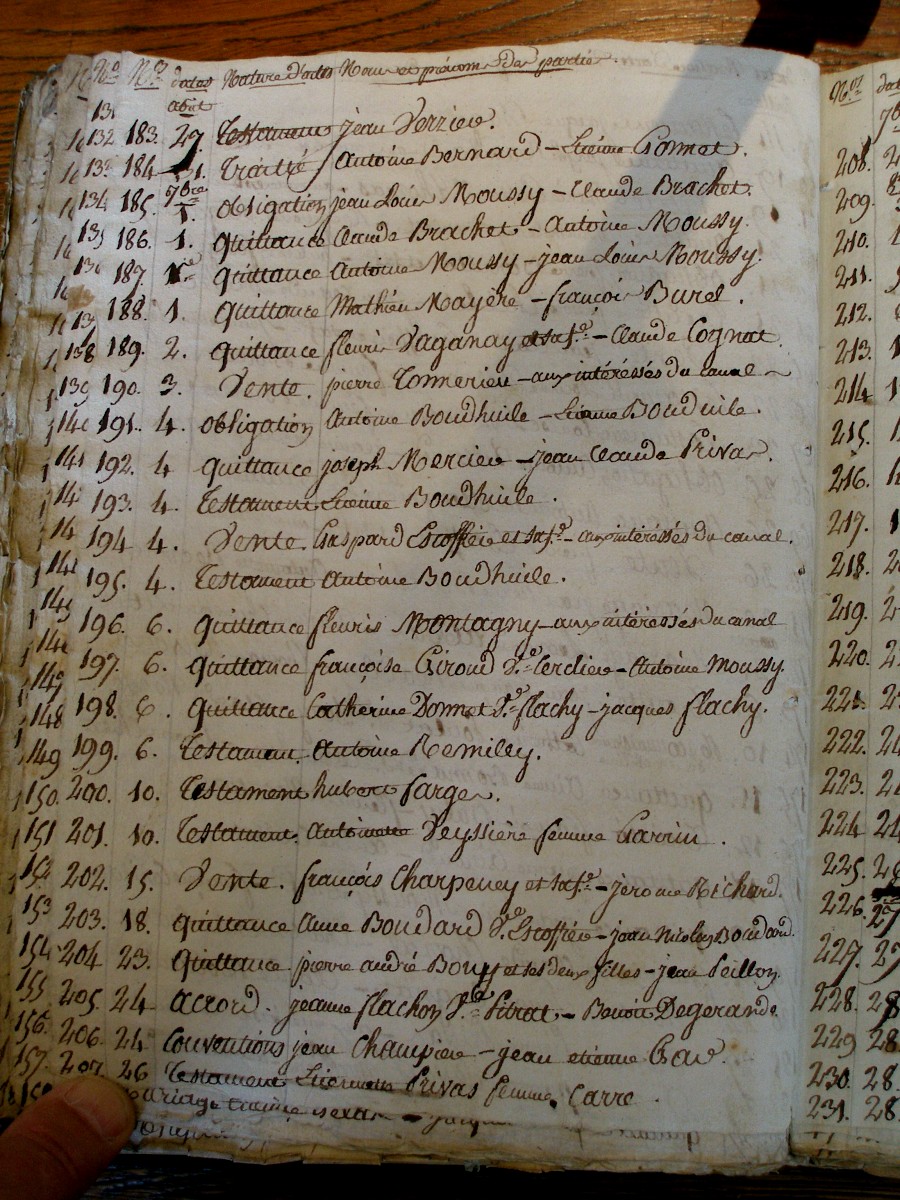 No. Nos. dates Nature d'actes Noms et prénoms des parties
aout
183. 27. Testament jean Verzieu.
184. 31. Traitté Antoine Bernard - Etienne Gonnet.
185. 7bre 1. obligation jean Louis Moussy - Claude Brachet.
186. 1. quittance Claude Brachet - Antoine Moussy.
187. 1re quittance Antoine Moussy - jean Louis Moussy.
188. 1. quittance Mathieu Mayère - françois Burel.
189. 2. quittance fleuris Vaganay et sa fe. - Claude Cognat.
190. 3. Vente. pierre Tonnerieu - aux intéressés du canal
191. 4. obligation Antoine Boudhuile - Etienne Bouduile.
192. 4 quittance joseph Mercier - jean Claude Privas.
193. 4. Testament Etienne Boudhuile.
194 4. Vente. Gaspard Escoffier et sa fe. - aux intéressés du canal.
195. 4. Testament Antoine Boudhuile.
196. 6. quittance fleuris Montagny - aux intéressés du canal
197. 6. quittance françoise Giroud Ve. Cerclieu - Antoine Moussy.
198. 6. quittance Catherine Donnet Ve. flachy - jacques flachy.
199. 6. Testament Antoine Remilley.
200. 10. Testament hubert farges.
201. 10. Testament. Antoinette Veyssière femme Garrin.
202. 15. Vente. françois Charpeney et sa fe. - jerome Richard.
203. 18. quittance Anne Boudard Ve. Escoffier - jean Nicolas Boudard.
204 23. quittance. pierre andré Bouy et ses deux filles - jean Peillon.
205. 24 accord. jeanne flachon Ve. Pitrat - Benoit Degerande.
206. 24 Conventions jean Champier - jean etienne
207. 26 Testament Etiennette Privas femme Carre.
mariage
208.
209.
210.
211.
212.
213.
214
215.
216.
217.
218.
219.
220.
221.
222.
223.
224
225.
226. 27
227. 27
228. 28
229 28
230. 28.
231. 28.